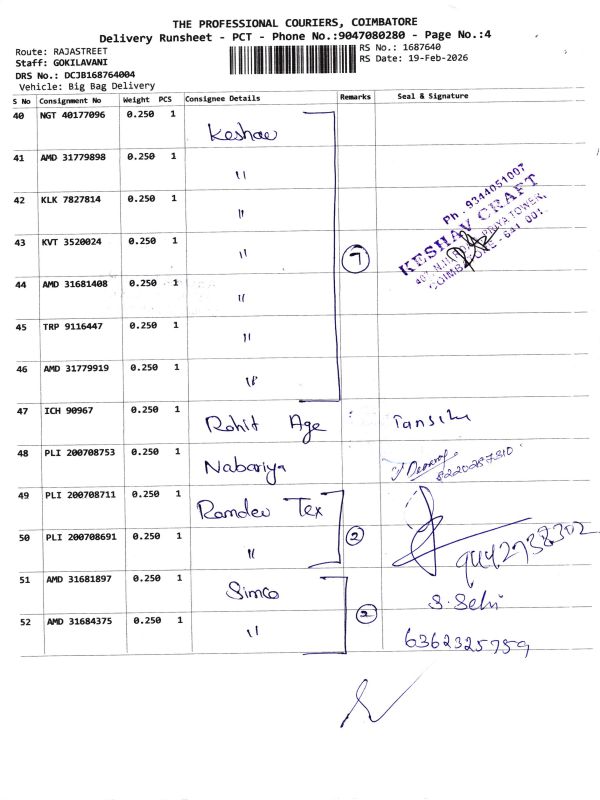 THE PROFESSIONAL COURIERS, COIMBATORE
Delivery Runsheet - PCT - Phone No.:9047080280 - Page No.:4
Route: RAJASTREET
Staff: GOKILAVANI
DRS No.: DCJB168764004
Vehicle: Big Bag Delivery
RS No.: 1687640
RS Date: 19-Feb-2026
S No Consignment No Weight PCS Consignee Details Remarks Seal & Signature
40 NGT 40177096 0.250 1 Keshav
41 AMD 31779898 0.250 1 "
42 KLK 7827814 0.250 1 "
43 KVT 3520024 0.250 1 " 7
Ph : 9344051007
KESHAV CRAFT
PRIYA TOWER,
COIMBATORE - 641 001.
44 AMD 31681408 0.250 1 "
45 TRP 9116447 0.250 1 "
46 AMD 31779919 0.250 1 "
47 ICH 90967 0.250 1 Rohit Age
48 PLI 200708753 0.250 1 Nabariya 8220287310
49 PLI 200708711 0.250 1 Ramdev Tex
50 PLI 200708691 0.250 1 " 2 9442738302
51 AMD 31681897 0.250 1 Simco
52 AMD 31684375 0.250 1 " 2 6362325759